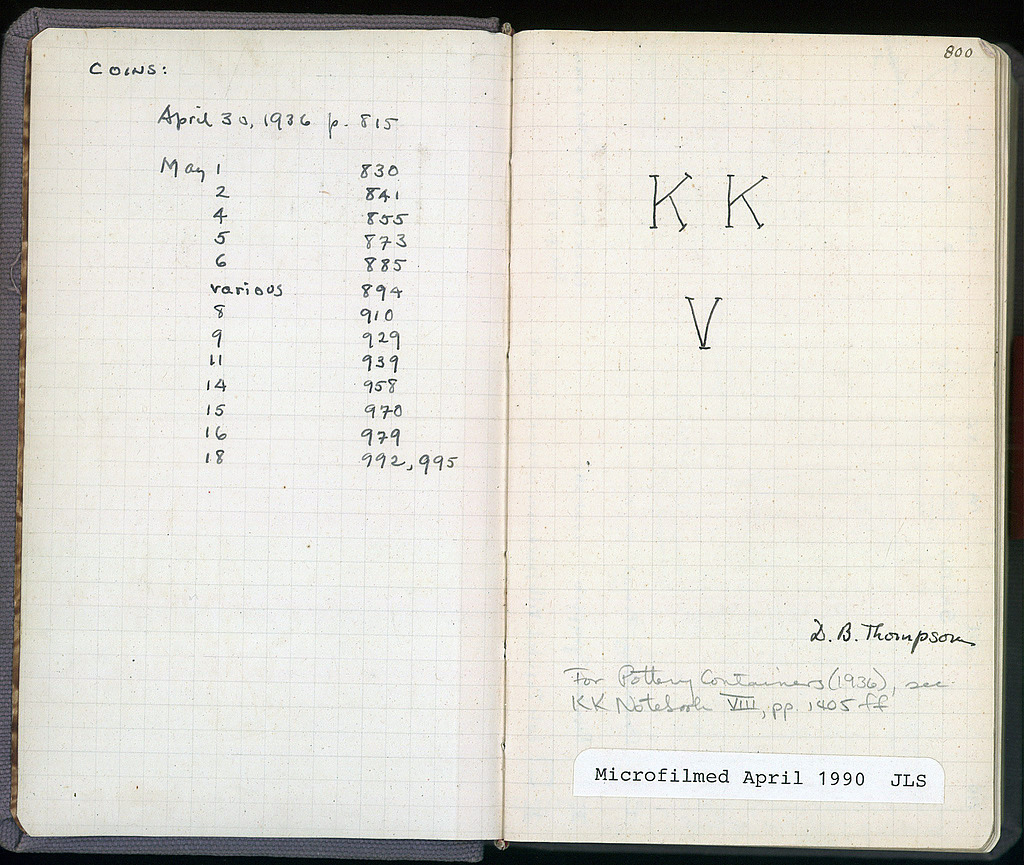 COINS:
April 30, 1936 p. 815
May 1 830
2 841
4 855
5 873
6 885
various 894
8 910
9 929
11 939
14 958
15 970
16 979
18 992, 995
800
K K
V
D. B. Thompson
For Pottery Containers (1936), see
KK Notebook VIII, pp. 1405 ff
Microfilmed April 1990 JLS